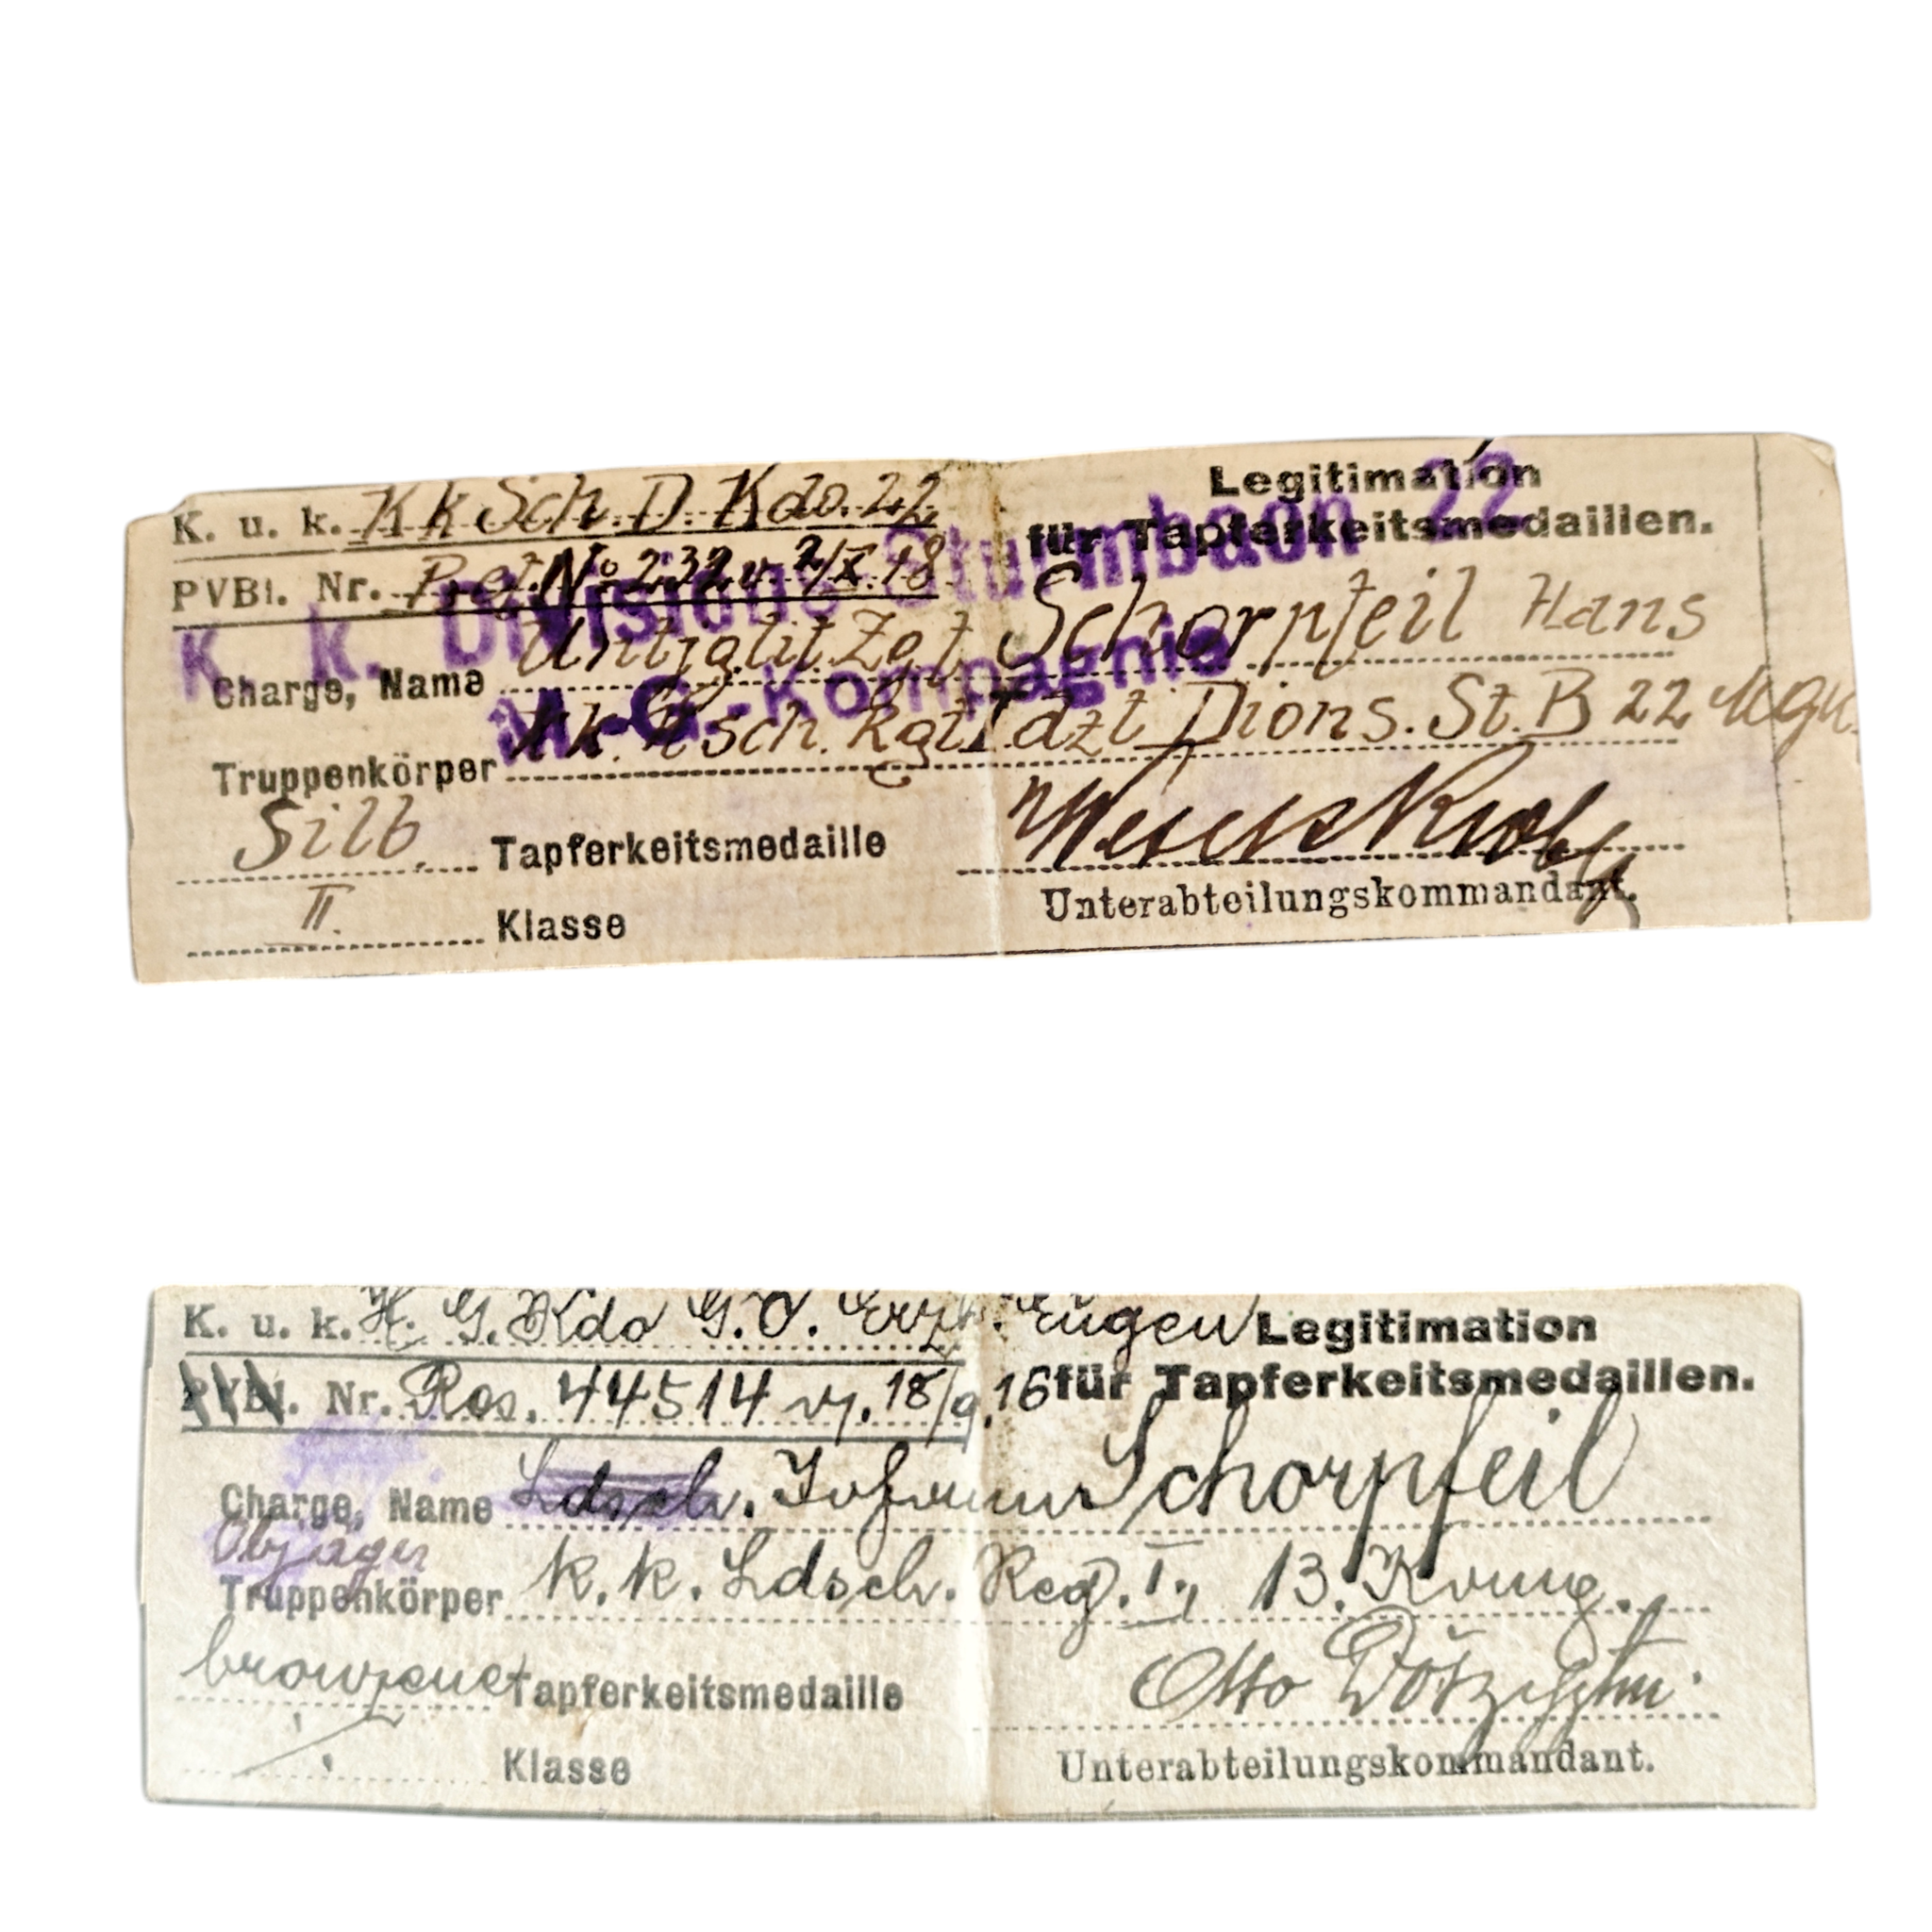 K. u. k. K k Sch. D. Kdo. 22
Legitimation
für Tapferkeitsmedaillen.
PVBl. Nr. Präs. No 232 v. 2/X. 18
K. k. Divisions Sturmbaon 22
M.-G.-Kompagnie
Charge, Name Untjg. tit Zgf Schorpfeil Hans
Truppenkörper Kk. Ksch. Rgt I dzt Dions. St. B 22
Silb. Tapferkeitsmedaille
II. Klasse
Unterabteilungskommandant.
K. u. k. H. G. Kdo G. O. Erzh. Eugen
Legitimation
für Tapferkeitsmedaillen.
PVBl. Nr. Res. 44514 v. 18/9. 16
Charge, Name Ldsch. Johann Schorpfeil
Objäger
Truppenkörper k. k. Ldsch. Reg. I., 13. Komp.
bronzene Tapferkeitsmedaille
Klasse
Otto
Unterabteilungskommandant.